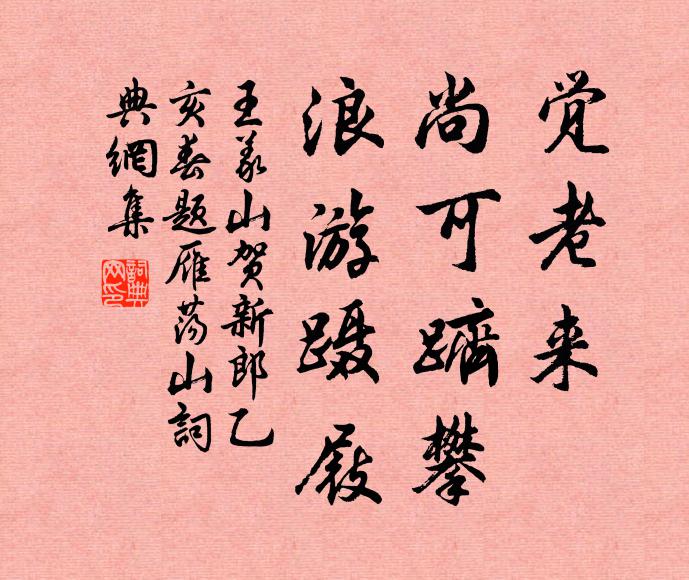 觉老来
尚可跻攀
浪游蹑屐
王义山贺新郎乙
亥春题雁荡山詞
典網集
詞典
网印